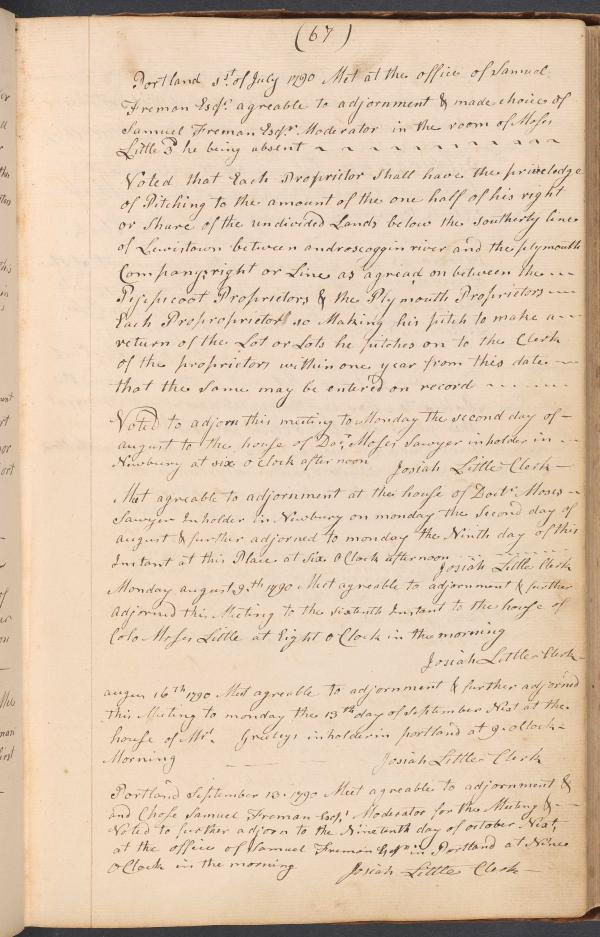 (67)
Portland 1st of July 1790 Met at the office of Samuel
Freman Esqr. agreable to adjornment & made choice of
Samuel Freman Esqr. Moderator in the room of Moses
Little he being absent
Voted that Each Proprietor Shall have the priveledge
of Pitching to the amount of the one half of his right
or Share of the undivided Lands below the Southerly line
of Lewistown between androscoggin river and the plymouth
Companys right or Line as agread on between the
Pejepscoot Proprietors & the Plymouth Proprietors
Each Propropriotor so Making his pitch to make a
return of the Lot or Lots he pitches on to the Clerk
of the proprietors within one year from this date
that the Same may be entered on record
Voted to adjorn this meeting to Monday the second day of
august to the house of Docr. Moses Sawyer inholder in
Newbury at six o Clock afternoon Josiah Little Clerk
Met agreable to adjornment at the house of Doctr. Moses
Sawyer Inholder in Newbury on monday the Second day of
august & further adjorned to monday the Ninth day of this
Instant at this Place at Six o Clock afternoon
Josiah Little Clerk
Monday august 9th 1790 Meet agreable to adjornment & further
adjorned this Meeting to the sixteenth Instant to the house of
Colo Moses Little at Eight o Clock in the morning
Josiah Little Clerk
augus 16th 1790 Met agreable to adjornment & further adjorned
this Meeting to monday the 13th day of September Next at the
house of Mr. Greeleys inholder in portland at 9 oClock
Morning Josiah Little Clerk
Portland September 13. 1790 Meet agreable to adjornment &
and Chose Samuel Freman Esqr. Moderator for the Meeting &
Voted to further adjorn to the Nineteenth day of october Next,
at the office of Samuel Freman Esqr. in Portland at Nine
o Clock in the morning Josiah Little Clerk